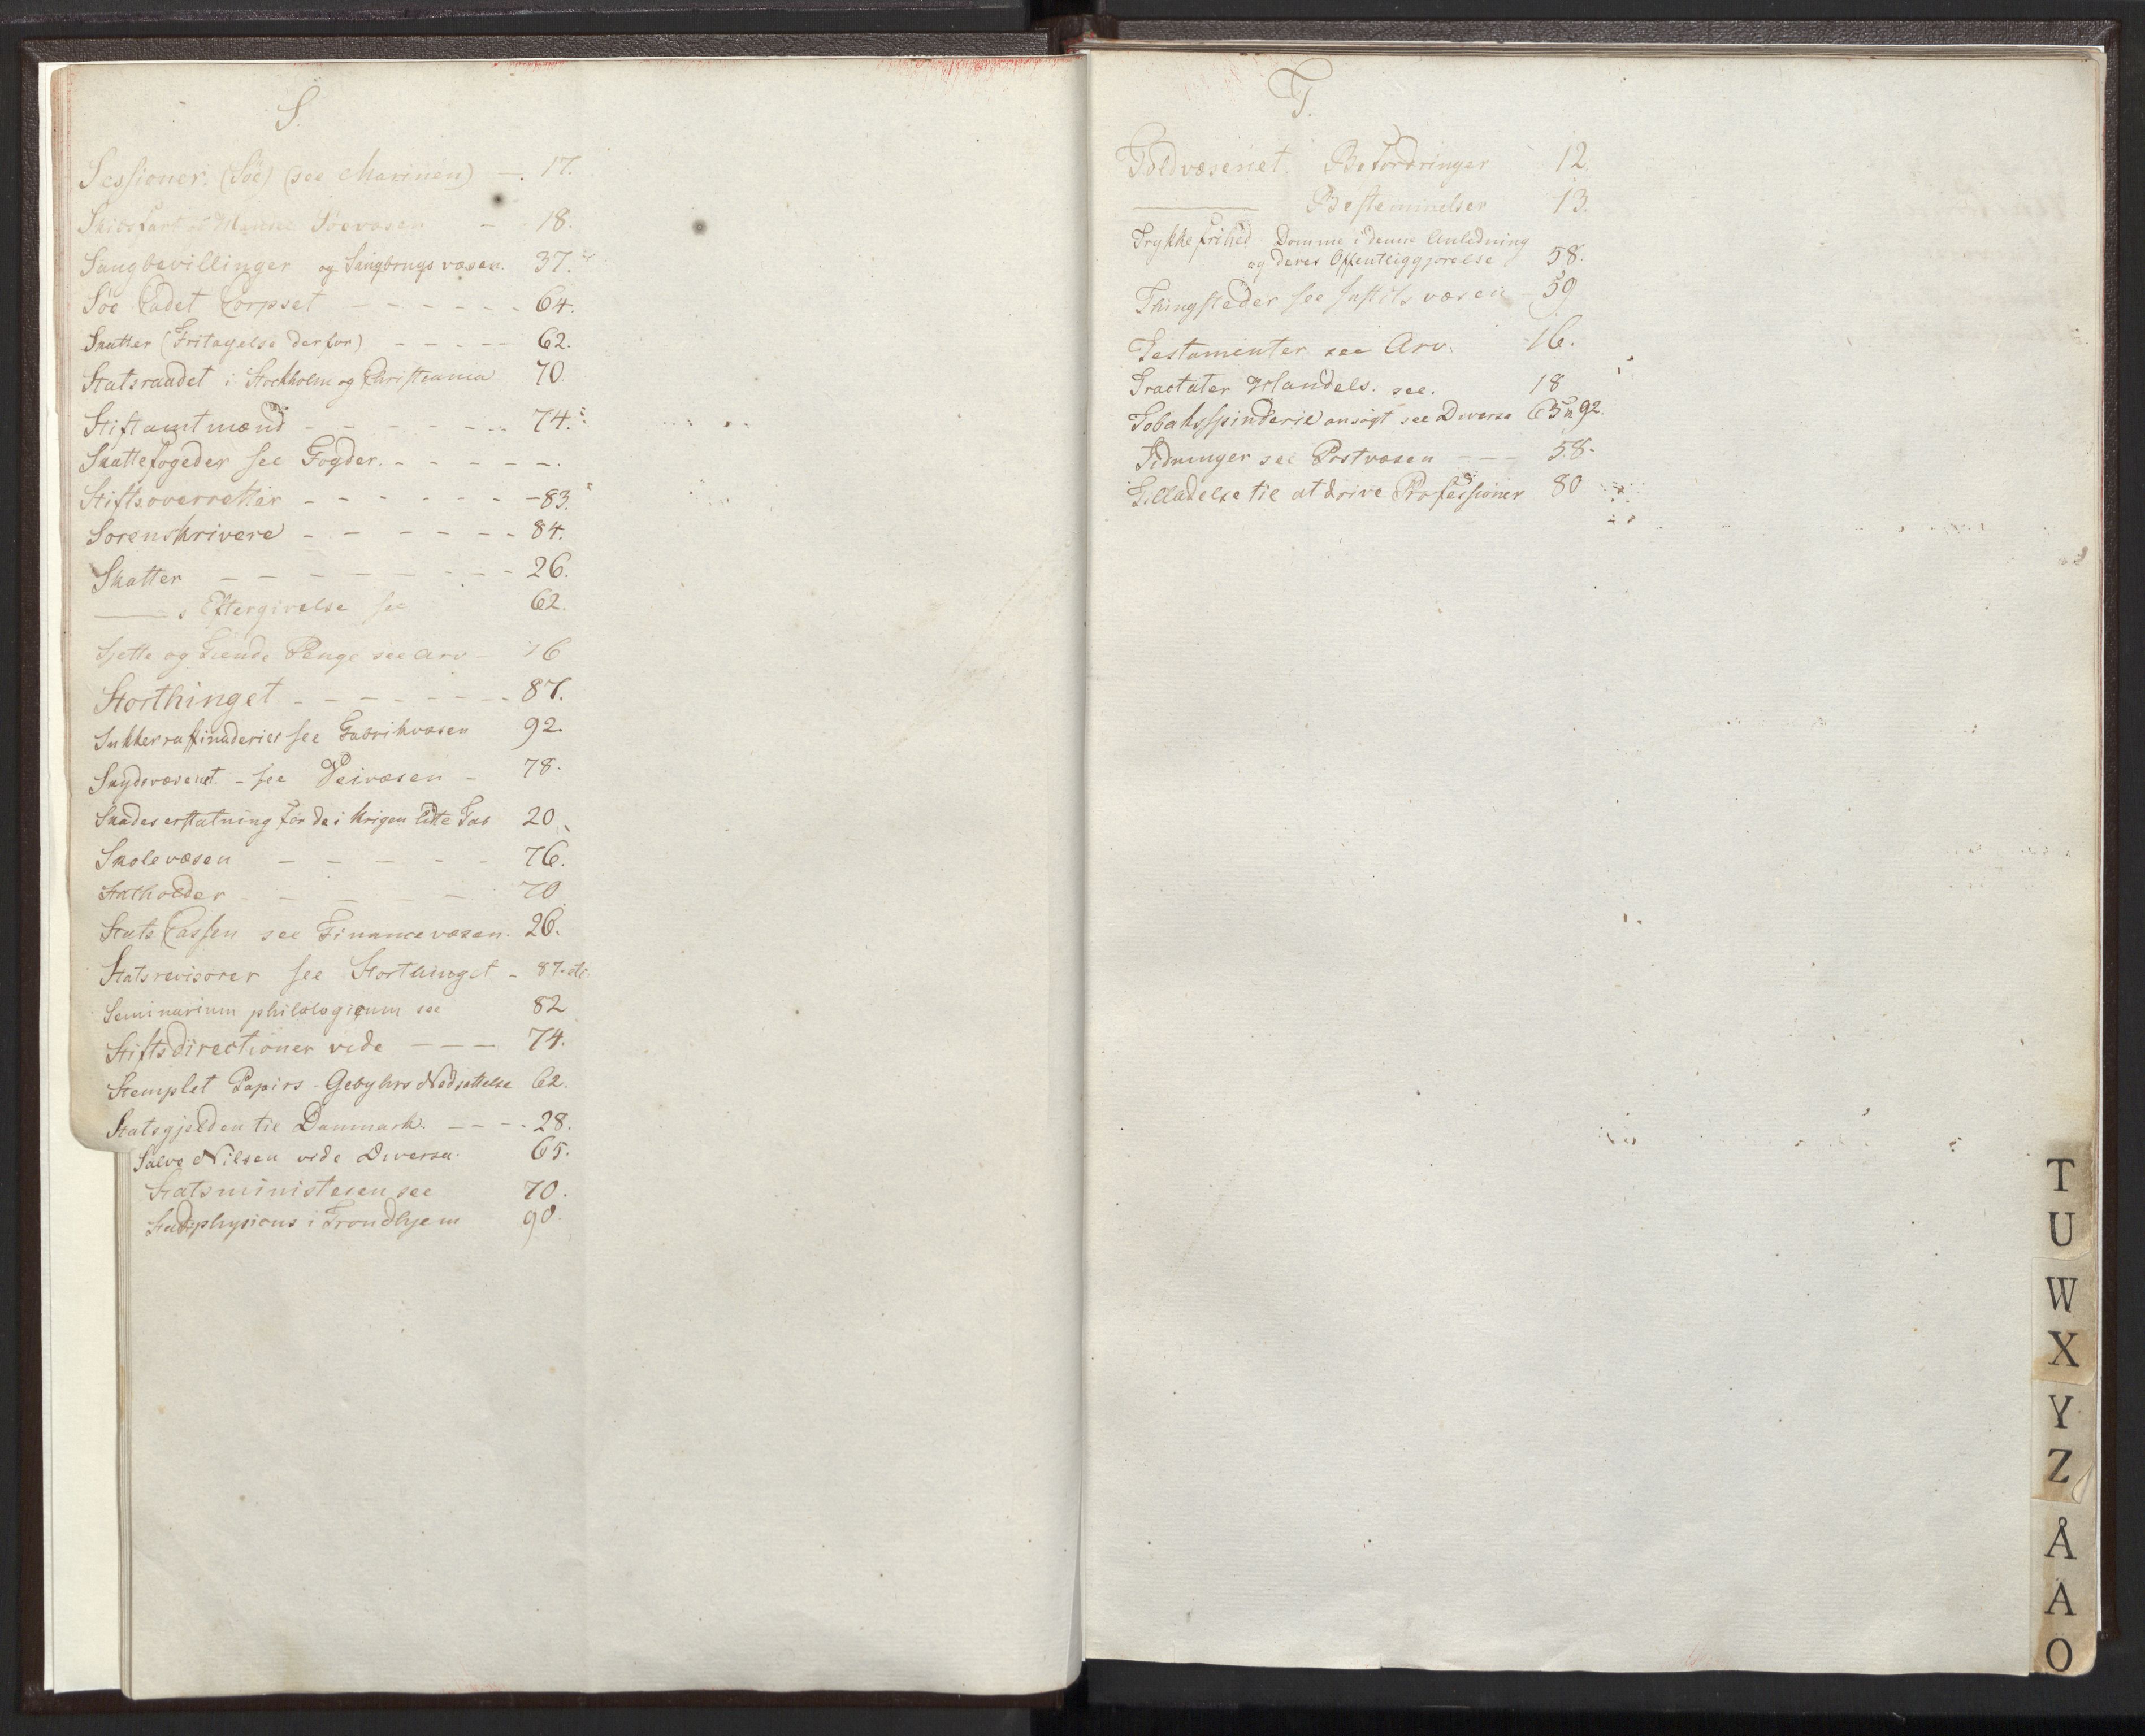 S.
Sessioner. (Söe) (see Marinen) — 17.
Skibsfart Handel Söevæsen - 18.
Saugbevillinger og Saugbrugs væsen. 37.
Söe Cadet Corpset - - - - - - 64.
Skatter (Fritagelse derfor) - - - - - 62.
Statsraadet i Stockholm og Christiania 70.
Stiftamtmænd - - - - - - - 74.
Skattefogeder see Fogder. - - - - - -.
Stiftsoverretter - - - - - - - 83.
Sorenskrivere - - - - - - 84.
Skatter - - - - - - - - 26.
——— s Eftergivelse see 62.
Sjette og Tiende Penge see Arv - 16
Storthinget - - - - - - 87.
Sukkerraffinaderier see Fabrikvæsen 92.
Skydsvæsenet - see Veivæsen - 78.
Skadeserstatning for de i Krigen lidte Tab 20.
Skolevæsen - - - - - 76.
Statholder - - - - - 70.
Stats Cassen see Financevæsen. 26.
Statsrevisorer see Storthinget - 87. etc.
Seminarium philologicum see 82
Stiftsdirectioner vide - - - 74.
Stemplet Papirs-Gebyhrs Nedsættelse 62.
Statsgjelden til Danmark. - - - - 28.
Salve Nilsen vide Diversa. 65.
Statsministeren see 70.
Stadsphysicus i Trondhjem 90.
T.
Toldvæsenet. Befordringer 12
——— Bestemmelser 13.
Trykkefrihed Domme i denne Anledning
og deres Offentliggjørelse 58.
Thingsteder see Justitsvæsen - 59
Testamenter see Arv. 16.
Tractater Handels. see. 18
Tobaksspinderie ansøgt see Diversa 65 & 92.
Tidninger see Postvæsen - - - 58.
Tilladelse til at drive Professioner 80
T
U
W
X
Y
Z
Å
A
O